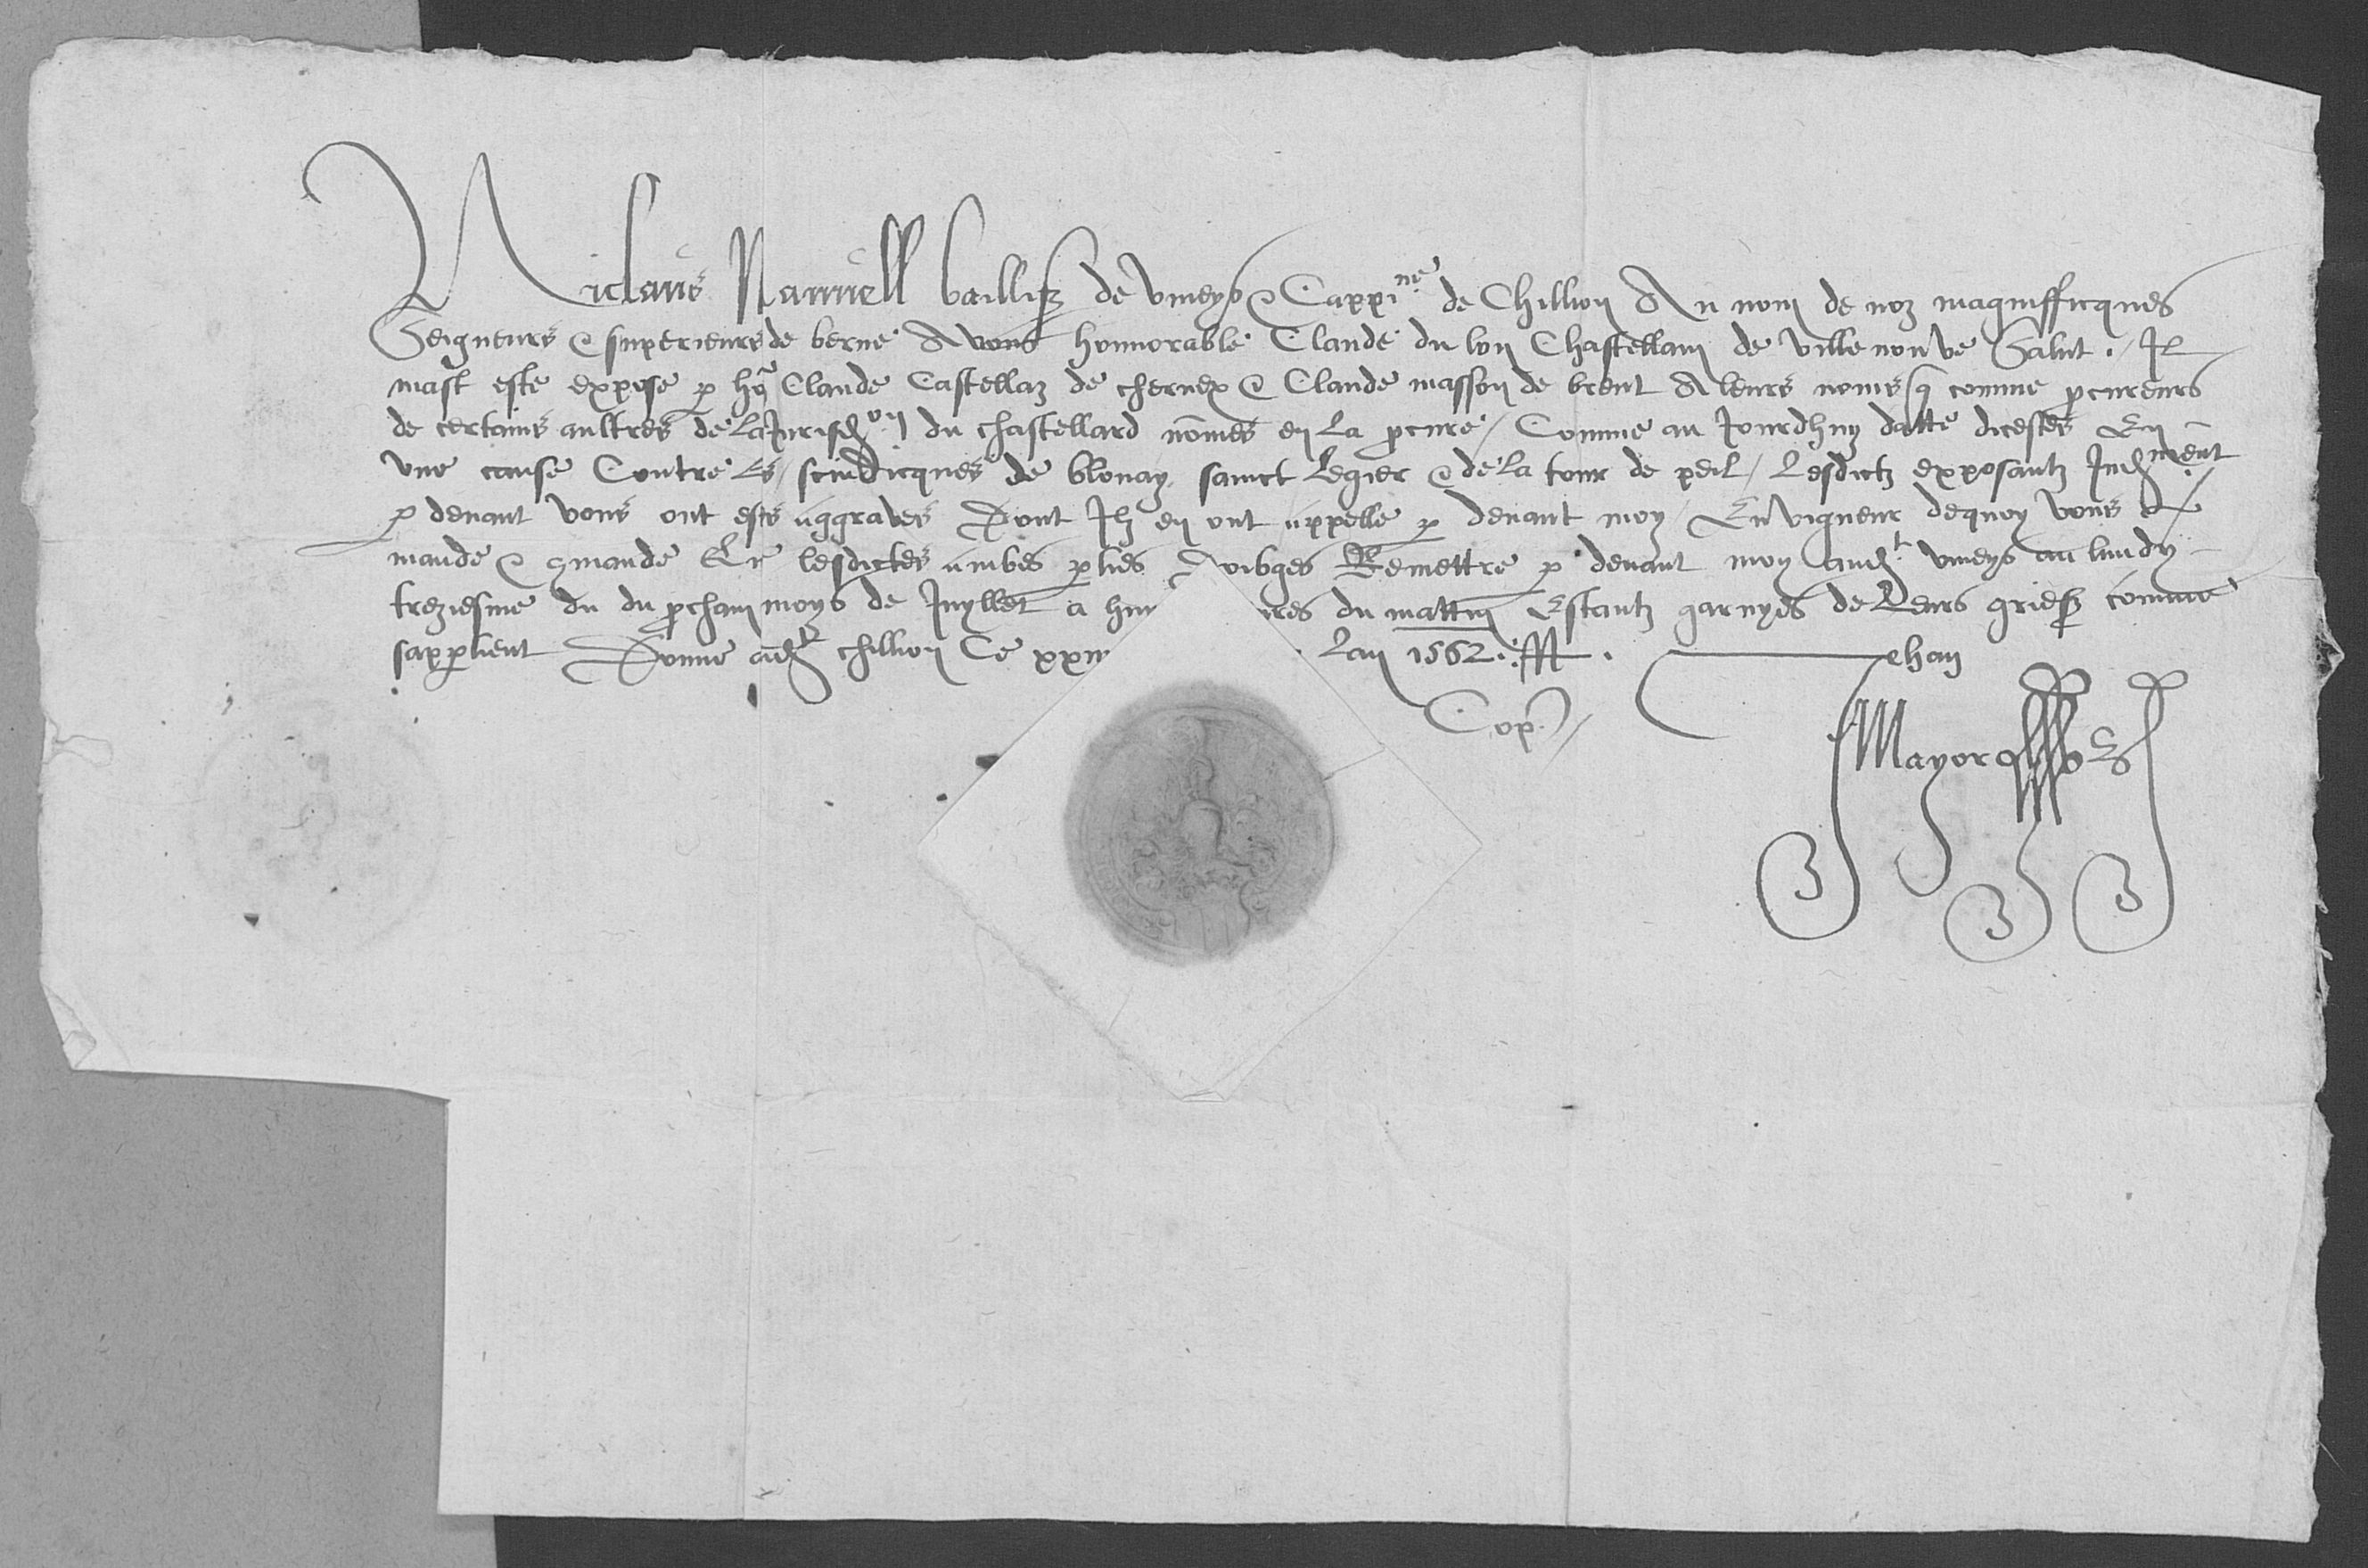 Niclaus Manuell bailliz de viveys & Cappi^ne de Chillion Au nom de noz magnifficques
Seigneurs & superieurs de berne A vous honnorable Claude du lon Chastellain de ville nouve Salut. Il
mast este expose p Claude Castellaz de chernex & Claude masson de brent A leurs noms q comme pcureurs
de certains aultres de la Jurisd^on du chastellard nomes en la pcure / Comme au Jourdhuy datte dicestes En
une cause Contre les scindicques de blonay sainct legier & de la tour de peil / Lesdictz exposantz
p devant vous ont estes aggraves Dont Ilz en ont appelle p devant moy / En vigueur dequoy vous
mande & 9mande Que lesdictes ambes pties Remettre p devant moy aud^t viveys au lundy
treziesme du du pchain moys de Juyllet a du mattin Estantz garnyes de Leurs griefz comme
sappertient Donne aud^t chillion Ce Lan 1562
Jehan
Cop.
Mayor